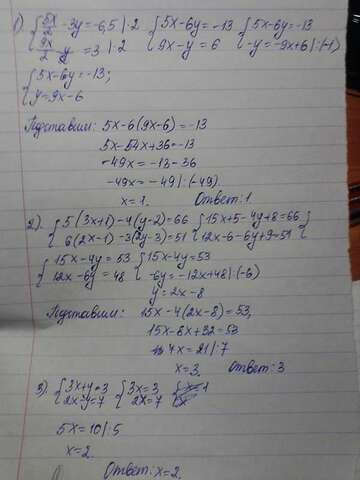 1) { 5x/2 - 3y = -6,5 |·2 { 5x-6y = -13 { 5x-6y = -13
9x/2 - y/2 = 3 |·2 9x-y = 6 -y = -9x+6 |·(-1)
{ 5x-6y = -13;
y = 9x-6
Подставим: 5x-6(9x-6) = -13
5x-54x+36 = -13
-49x = -13-36
-49x = -49 |:(-49).
x = 1. Ответ: 1
2). { 5(3x+1)-4(y-2) = 66 { 15x+5-4y+8 = 66 {
6(2x-1)-3(2y-3) = 51 12x-6-6y+9 = 51
{ 15x-4y = 53 { 15x-4y = 53
12x-6y = 48 -6y = -12x+48 |:(-6)
y = 2x-8
Подставим: 15x-4(2x-8) = 53,
15x-8x+32 = 53
4x = 21 |:7
x = 3. Ответ: 3
3) { 3x+y = 3 { 3x = 3
2x-y = 7 2x = 7
5x = 10 |:5
x = 2.
Ответ: x = 2.